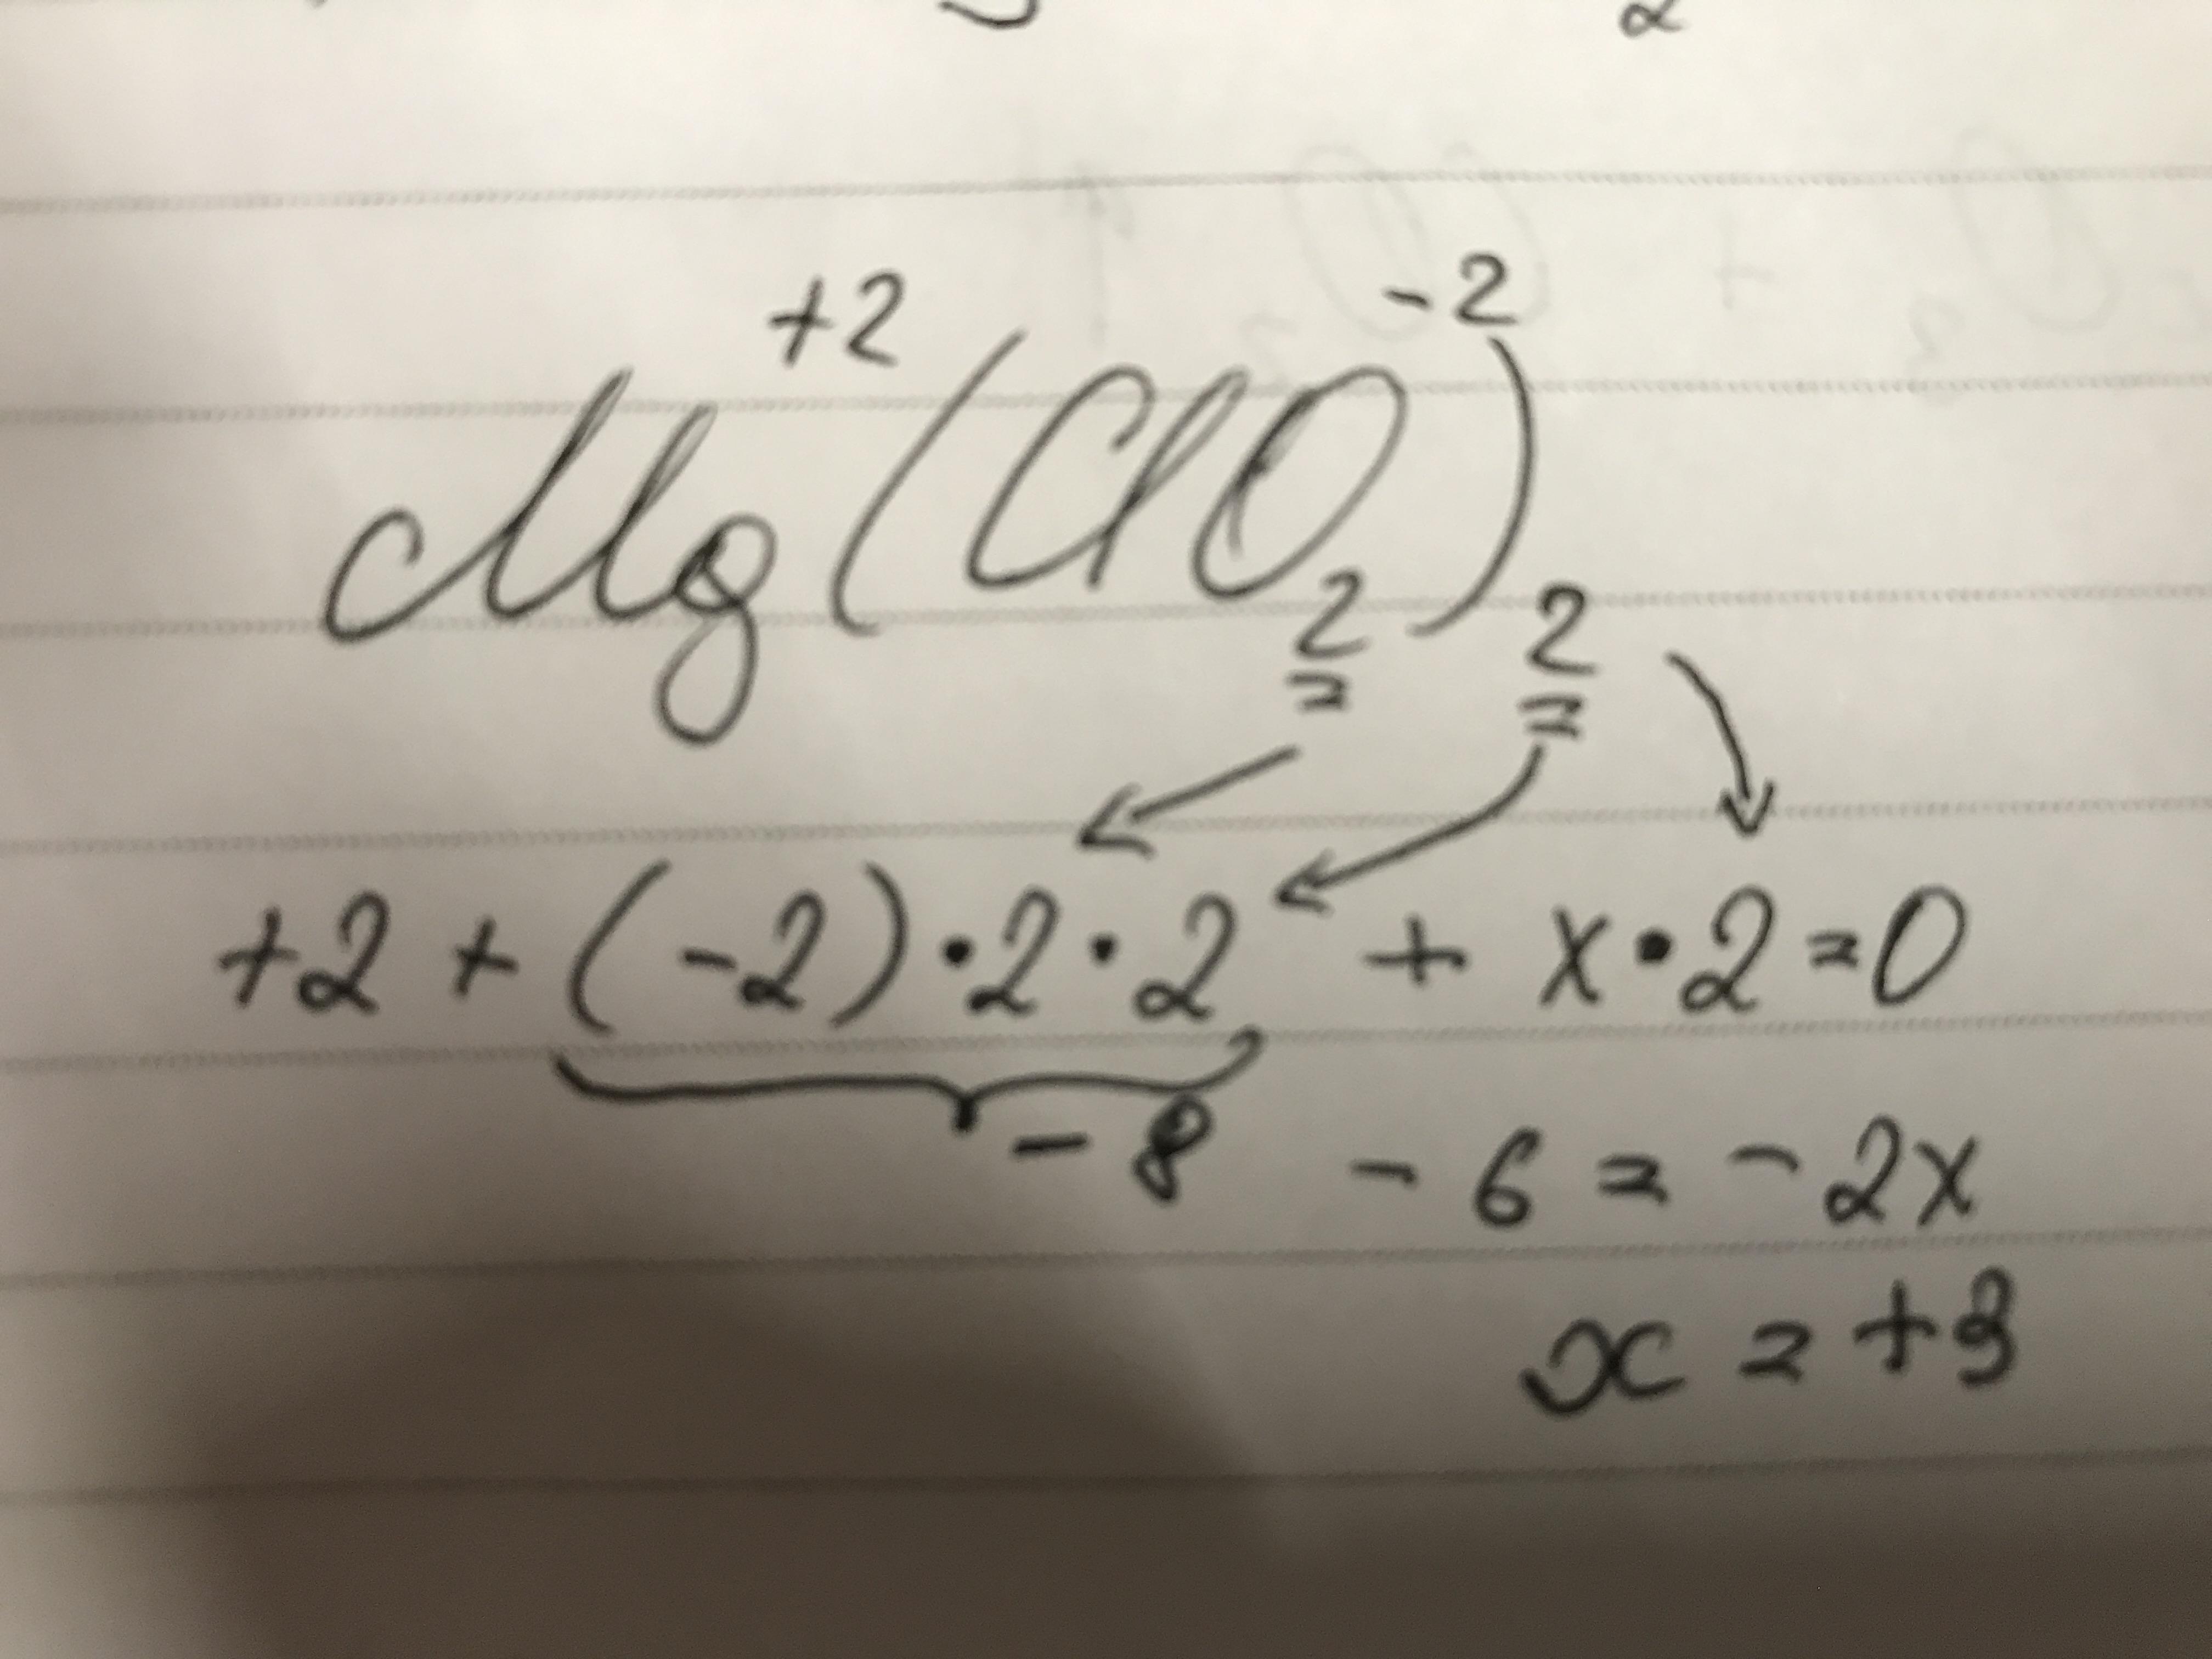 +2 -2
Mg(ClO2)2
+2 + (-2)·2·2 + x·2=0
-8 -6 = -2x
x = +3